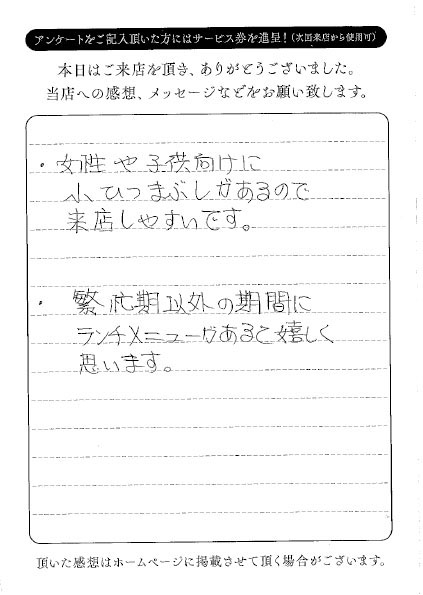 アンケートをご記入頂いた方にはサービス券を進呈！（次回来店から使用可）
本日はご来店を頂き、ありがとうございました。
当店への感想、メッセージなどをお願い致します。
・女性や子供向けに
小ひつまぶしがあるので
来店しやすいです。
・繁忙期以外の期間に
ランチメニューがあると嬉しく
思います。
頂いた感想はホームページに掲載させて頂く場合がございます。